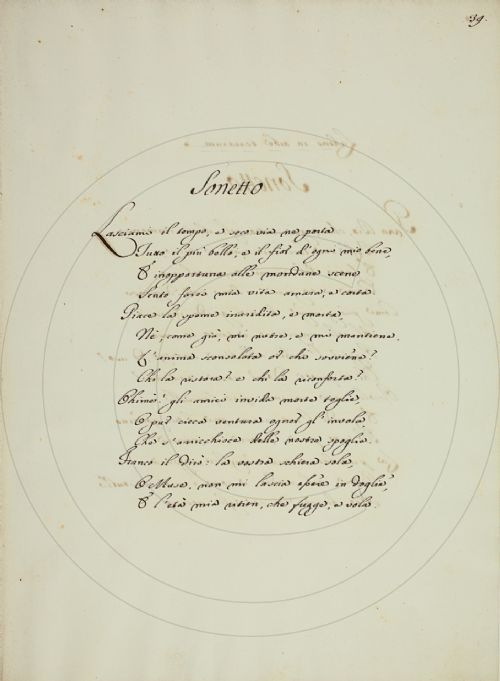 39.
Sonetto
Lasciami il tempo, e seco via ne porta
Tutto il più bello, e il fior d'ogni mio bene,
E inopportuna alle mondane scene
Sento farsi mia vita amara, e corta.
Giace la speme inaridita, e morta,
Nè, come già, mi nutre, e mi mantiene.
L'anima sconsolata or che sovviene?
Chi la ristora? e chi la riconforta?
Ohimè! gli amici invida morte toglie,
O pur cieca ventura ognor gl'invola
Che s'arricchisce delle nostre spoglie.
Franco il dirò: la vostra schiera sola,
O Muse, non mi lascia essere in doglie,
E l'età mia ritien, che fugge, e vola.